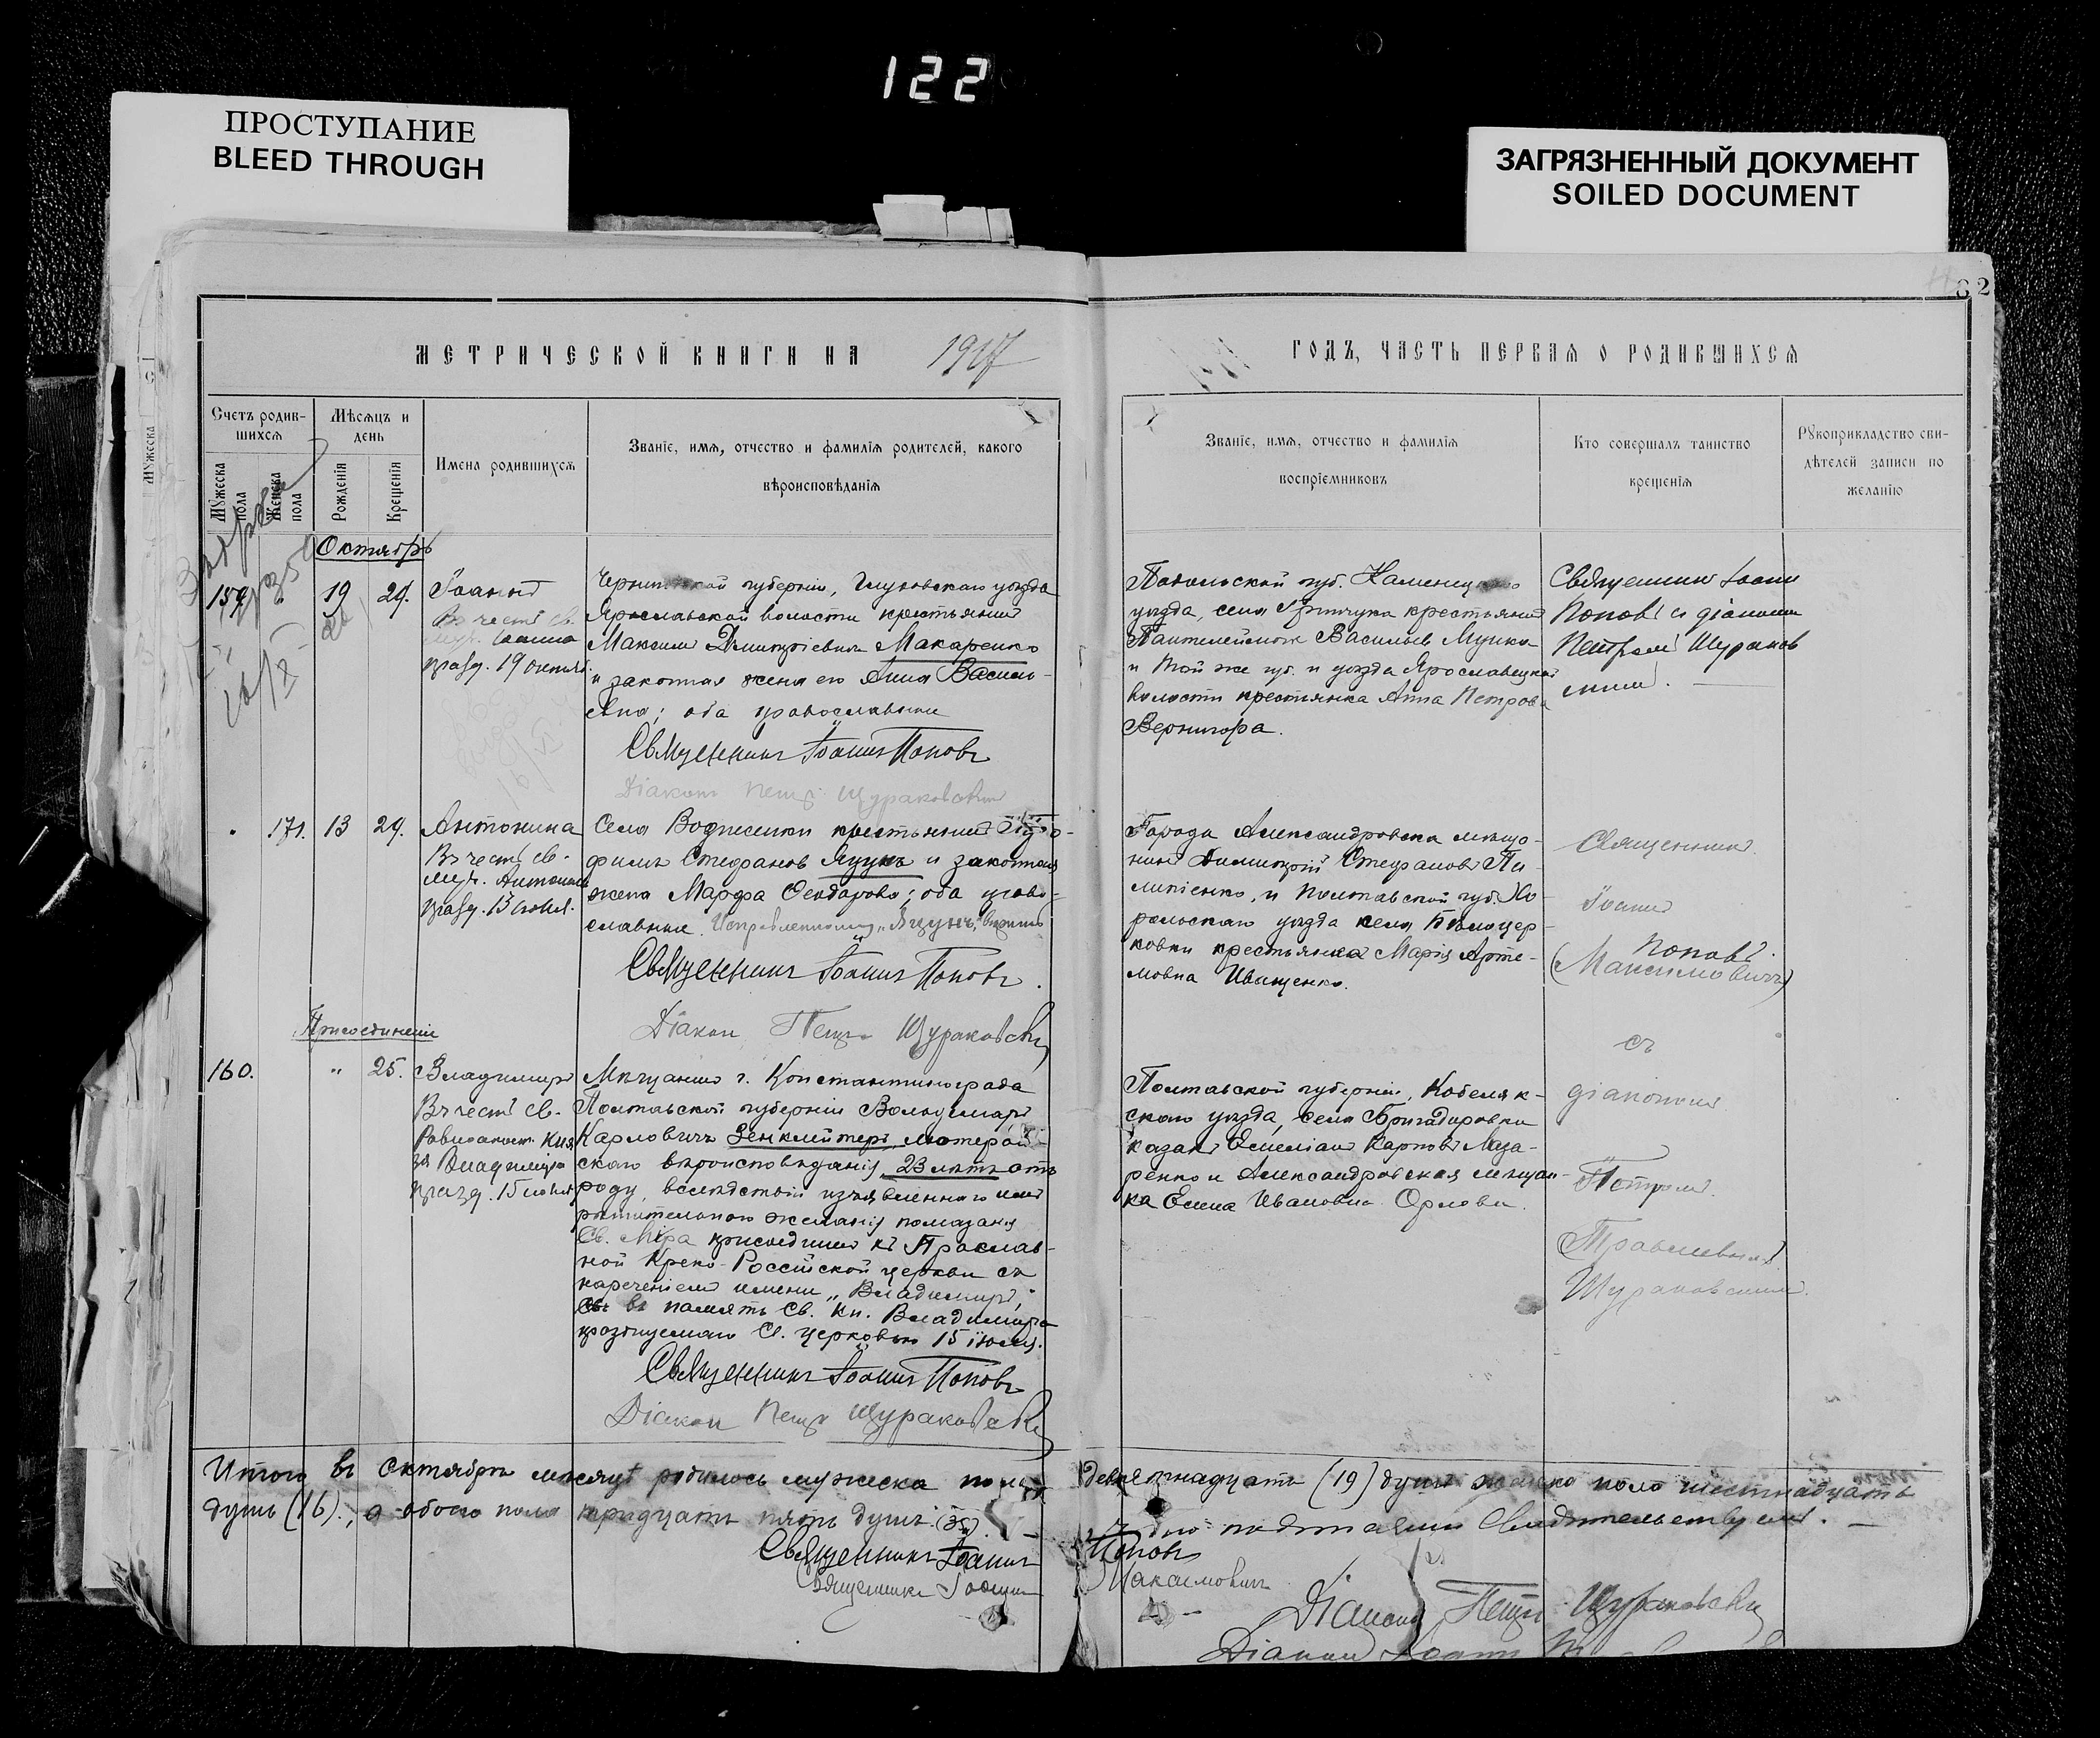 122
ПРОСТУПАНИЕ
BLEED THROUGH
ЗАГРЯЗНЕННЫЙ ДОКУМЕНТ
SOILED DOCUMENT
62
МЕТРИЧЕСКОЙ КНИГИ НА 1917
ГОДЪ, ЧАСТЬ ПЕРВАЯ О РОДИВШИХСЯ
Мужеска
Счетъ родив-
шихся
Мѣсяцъ и
день
Мужеска пола
Женска пола
Рожденія
Крещенія
Имена родившихся
Званіе, имя, отчество и фамилія родителей, какого
вѣроисповѣданія
Званіе, имя, отчество и фамилія
воспріемниковъ
Кто совершалъ таинство
крещенія
Рукоприкладство сви-
дѣтелей записи по
желанію
Октябрь
159. " 19 29. Іоаннъ
Въ честь св.
Іоанна
празд. 19 октяб.
губерніи, Глуховскаго уѣзда
Ярославской волости крестьянинъ
Максимъ Димитріевичъ Макаренко
и законная жена его Анна Василь-
евна; оба православные
Священникъ Іоаннъ Поповъ
Діаконъ Петръ Щураковскій
Подольской губ. Каменецкаго
уѣзда, села крестьянинъ
Пантелеймонъ Васильев
и той же губ. и уѣзда Ярославецкой
волости крестьянка Анна Петрова
Вернигора.
Священник Іоанн
Поповъ и діакон
Петромъ Щураков
ским.
171. 13 29. Антонина
Въ честь св.
муч. Антонины
празд. 13 июня.
Села Вознесенки крестьянинъ
филъ Стефановъ Яцунъ и законная
жена Марфа Феодорова; оба право-
славные. "Яцунъ" вѣрить
Священникъ Іоаннъ Поповъ.
Діакон Петръ Щураковскій
Города Александровска мѣща-
нинъ Димитрій Стефановъ Пи-
липенко, и Полтавской губ. Хо-
рольскаго уѣзда села Бѣлоцер-
ковки крестьянка Марія Арте-
мовна Иващенко.
Священник
Іоанн
Поповъ.
(Максимовичъ)
съ
діакономъ
Петромъ
Щураковским.
Присоединеніе
160. " 25. Владимиръ
Въ честь св.
Равноапост. Кня
зя Владиміра
празд. 15 июля
Мѣщанинъ г. Константинограда
Полтавской губерніи Вольдемаръ
Карловичъ Зенклейтеръ, лютеран-
скаго вѣроисповѣданія, 23 лѣтъ отъ
роду, вслѣдствіи изъявленнаго имъ
рѣшительнаго желанія помазанія
Св. Мѵра присоединенъ къ Православ-
ной Греко-Россійской церкви съ
нареченіемъ имени "Владимиръ,"
въ память Св. Кн. Владиміра
празднуемаго Св. церковью 15 июля.
Священникъ Іоаннъ Поповъ
Діакон Петръ Щураковскій
Полтавской губерніи, Кобеляк-
скаго уѣзда, села Бригадировки
казакъ Емеліанъ Карповъ Лаза-
ренко и Александровская мѣщан-
ка Елена Ивановна Орлова.
Итого въ Октябрѣ мѣсяцѣ родилось мужеска пола девятнадцать (19) душъ женска пола шестнадцать
душъ (16)., а обоего пола тридцать пять душъ (35). подписомъ свидѣтельствуемъ.
Священникъ Іоаннъ Поповъ
Священникъ Іоаннъ Максимовичъ
Діаконъ Петръ Щураковскій
Діакон Іоанн